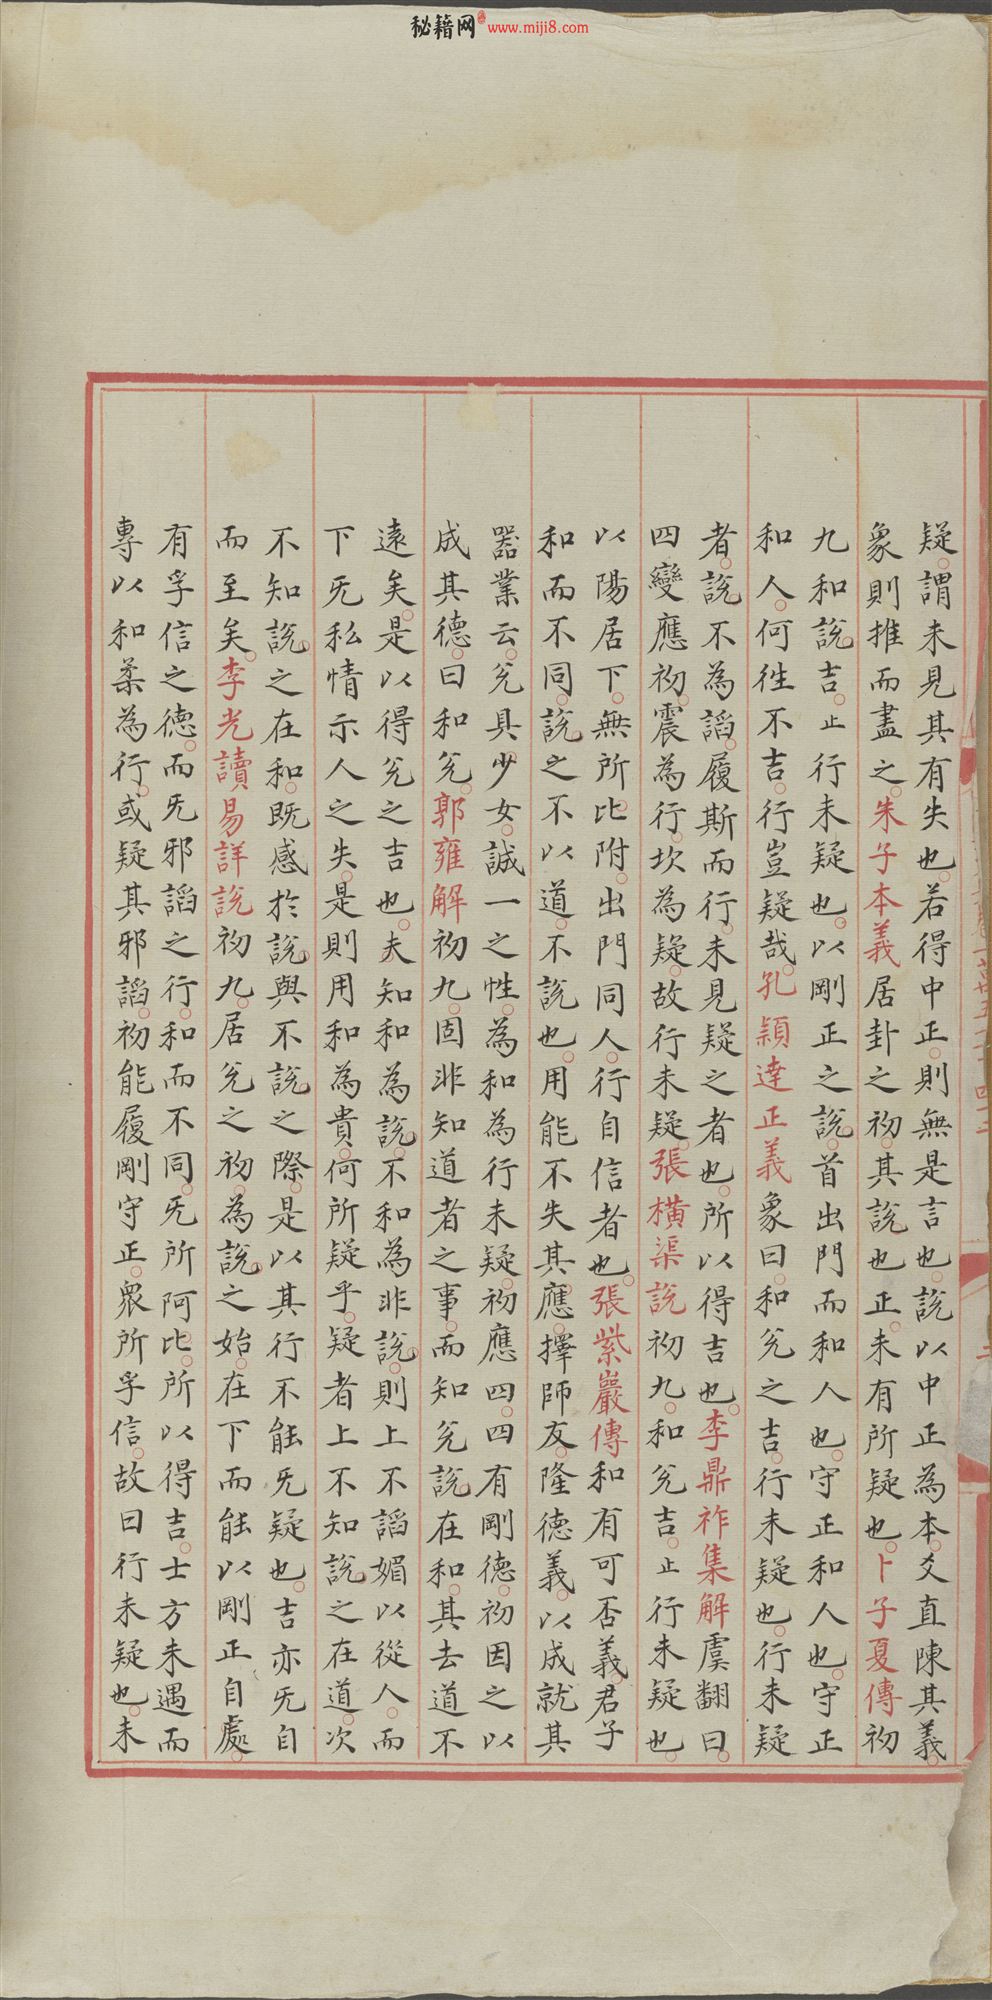 秘籍网 www.miji8.com
疑。謂未見其有失也。若得中正。則無是言也。說以中正為本。爻直陳其義。
象則推而盡之。朱子本義居卦之初。其說也正。未有所疑也。卜子夏傳初
九和說。吉。止行未疑也。以剛正之說。首出門而和人也。守正和人也。守正
和人。何徃不吉。行豈疑哉。孔頴達正義象曰。和兊之吉。行未疑也。行未疑
者。說不為謟。履斯而行。未見疑之者也。所以得吉也。李鼎祚集解虞翻曰。
四變應初。震為行。坎為疑。故行未疑。張橫渠說初九。和兊吉。止行未疑也。
以陽居下。無所比附。出門同人。行自信者也。張紫巖傳和有可否義。君子
和而不同。說之不以道。不說也。用能不失其應。擇師友。隆德義。以成就其
器業云。兊具少女。誠一之性。為和為行未疑。初應四。四有剛德。初因之以
成其德。曰和兊。郭雍解初九。固非知道者之事。而知兊說。在和。其去道不
遠矣。是以得兊之吉也。夫知和為說。不和為非說。則上不謟媚以從人。而
下旡私情示人之失。是則用和為貴。何所疑乎。疑者上不知說之在道。次
不知說之在和。既感於說。與不說之際。是以其行不能旡疑也。吉亦旡自
而至矣。李光讀易詳說初九。居兊之初。為說之始。在下而能以剛正自處。
有孚信之德。而旡邪謟之行。和而不同。旡所阿比。所以得吉。士方未遇而
專以和柔為行。或疑其邪謟。初能履剛守正。眾所孚信。故曰行未疑也。未